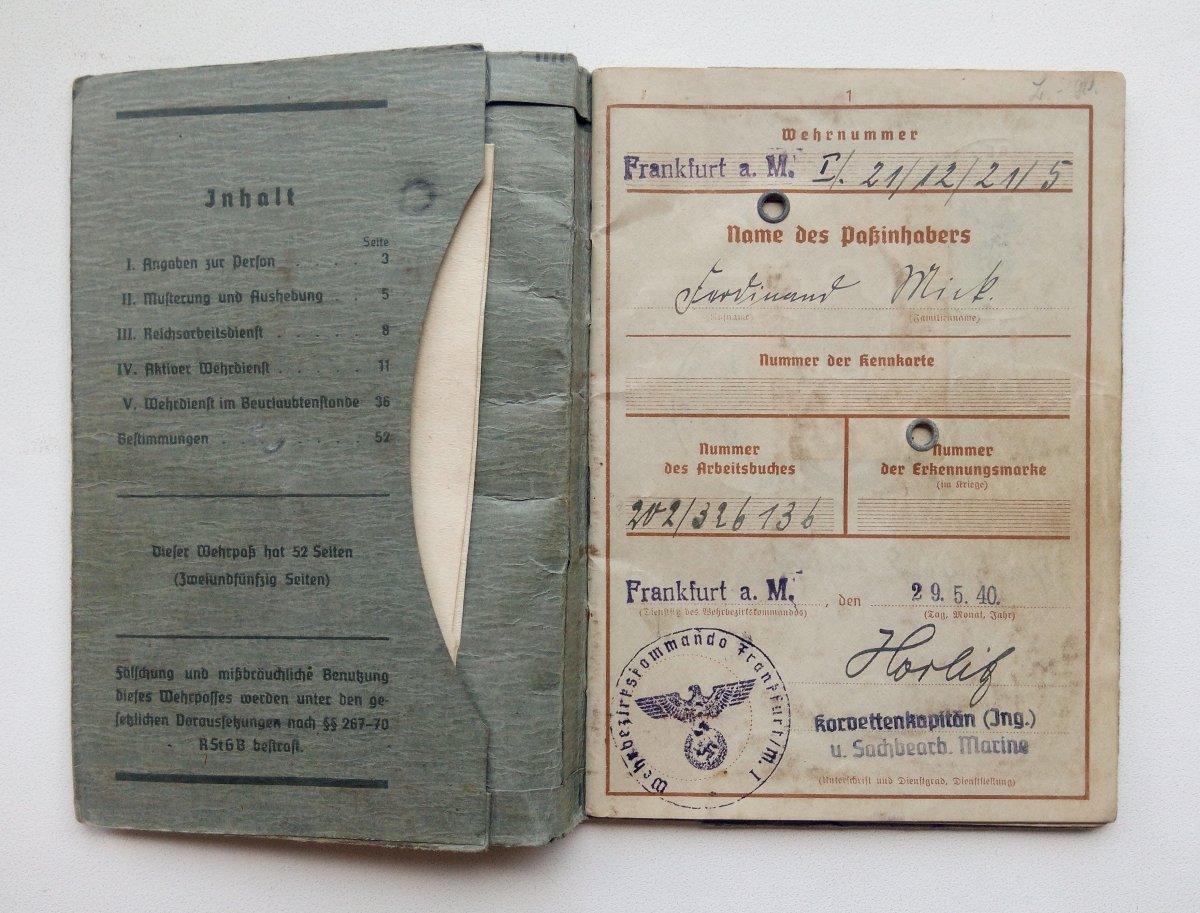 Inhalt
Seite
I. Angaben zur Person . . . . . 3
II. Musterung und Aushebung . . 5
III. Reichsarbeitsdienst . . . . . . 8
IV. Aktiver Wehrdienst . . . . . . 11
V. Wehrdienst im Beurlaubtenstande 36
Bestimmungen . . . . . . . . . 52
Dieser Wehrpaß hat 52 Seiten
(Zweiundfünfzig Seiten)
Fälschung und mißbräuchliche Benutzung
dieses Wehrpasses werden unter den ge-
setzlichen Voraussetzungen nach §§ 267–70
RStGB bestraft.
1
Wehrnummer
Frankfurt a. M. I/. 21/12/21/5
Name des Paßinhabers
Ferdinand Mick.
(Rufname) (Familienname)
Nummer der Kennkarte
Nummer
des Arbeitsbuches
202/326 136
Nummer
der Erkennungsmarke
(im Kriege)
Frankfurt a. M. , den 29. 5. 40.
(Dienstsitz des Wehrbezirkskommandos) (Tag, Monat, Jahr)
Wehrbezirkskommando Frankfurt/M I
Korvettenkapitän (Ing.)
u. Sachbearb. Marine
(Unterschrift und Dienstgrad, Dienststellung)